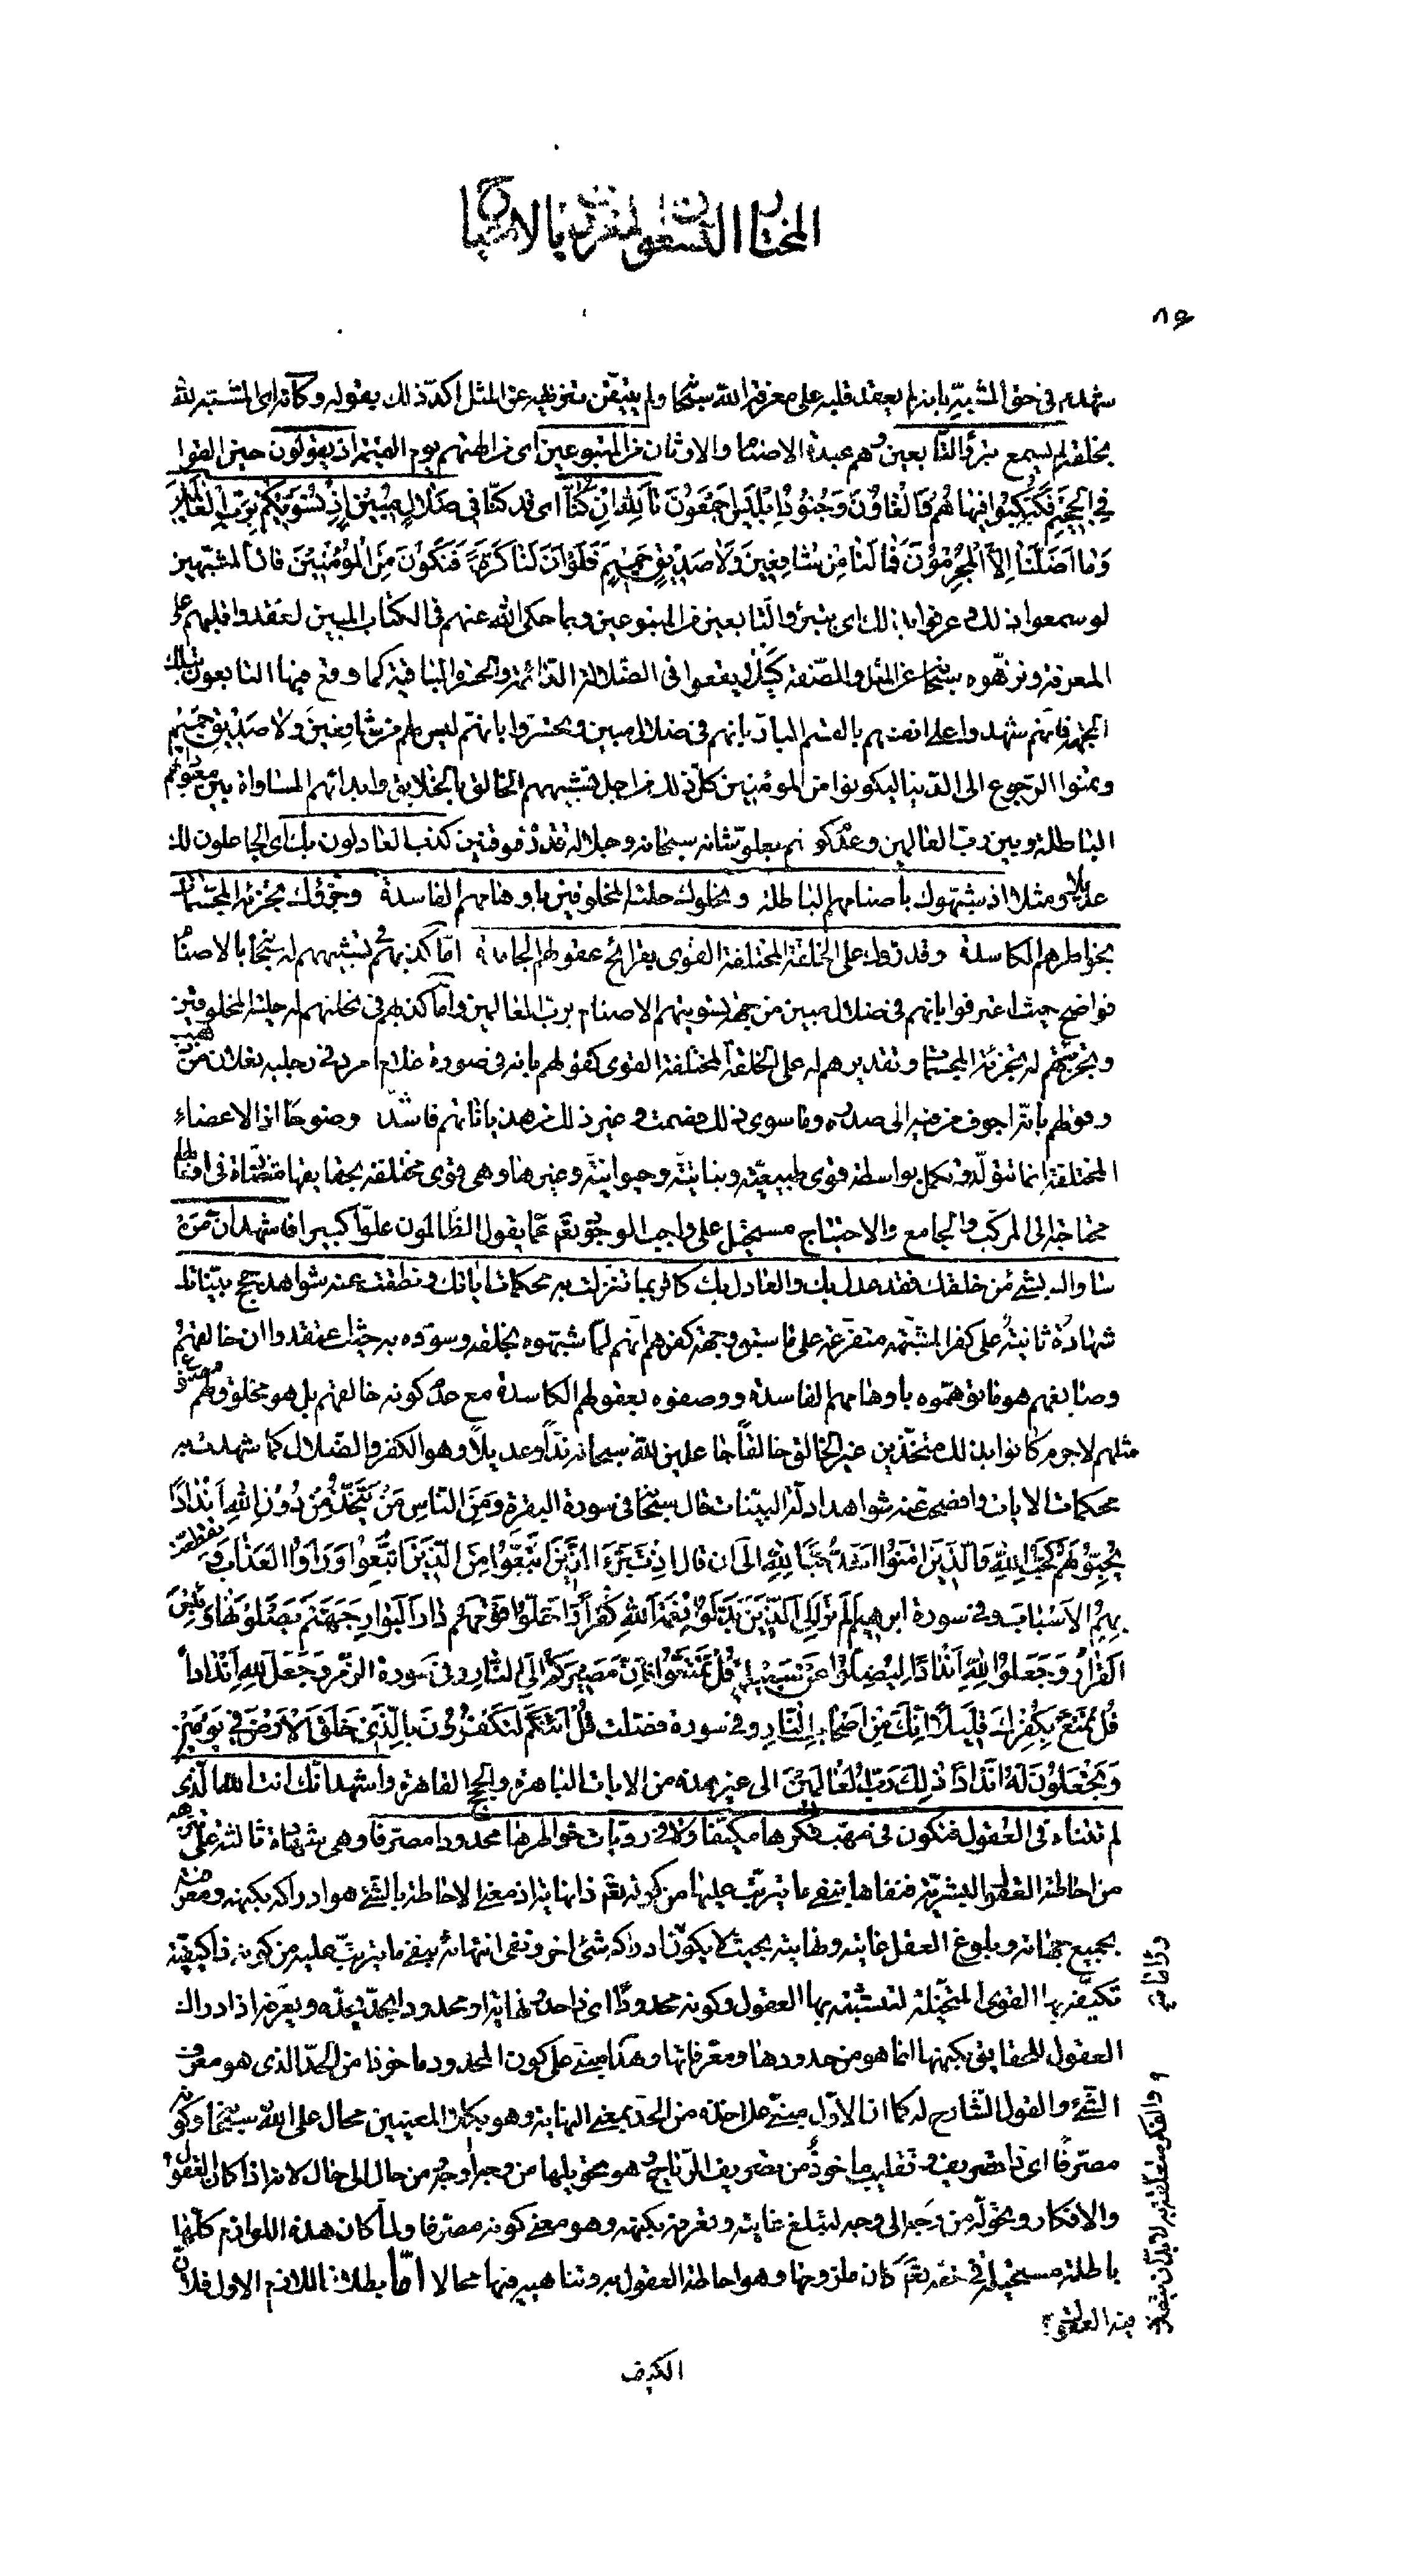 المختار التسعون المعروف بالاشباح
٨٩
شهد م في حق المشبّه بانه لم يعقد قلبه على معرفة الله سبحانه ولم يتيقن تنزيهه عن المثل اكد ذلك بقوله وكانه اى المشبّه لله
بخلقه لم يسمع تبرّؤ التّابعين وهم عبدة الاصنام والاوثان من المتبوعين اى من الهتهم يوم القيمة اذ يقولون حين القوا
في الجحيم فَكُبْكِبُوا فِيها هُمْ وَالْغاوُنَ وَجُنُودُ اِبْلِيسَ اَجْمَعُونَ تَاللهِ اِنْ كُنّا اى قد كنّا فى ضَلالٍ مُبِينٍ اِذْ نُسَوّيكُمْ بِرَبِّ الْعالَمِينَ
وَما اَضَلَّنا اِلاَّ الْمُجْرِمُونَ فَما لَنا مِنْ شافِعِينَ وَلا صَدِيقٍ حَمِيمٍ فَلَوْ اَنَّ لَنا كَرَّةً فَنَكُونَ مِنَ الْمُؤْمِنِينَ فان المشبّهين
لو سمعوا ذلك وعرفوا ذلك اى تبرّؤ التّابعين من المتبوعين وبما حكى الله عنهم فى الكتاب المبين لعقدوا قلبهم على
المعرفة ونزّهوه سبحانه عن المثل والصّفة كيلا يقعوا فى الضّلالة الدّائمة والحسرة الباقية كما وقع فيها التابعون بتلك
الجهة فانّهم شهدوا على انفسهم بالقسم البارّ بانهم فى ضلال مبين وتحسّروا بانهم ليس لهم من شافعين ولا صديق حميم
وتمنّوا الرّجوع الى الدّنيا ليكونوا من المؤمنين كلّ ذلك من اجل تشبيههم الخالق بالخلايق وابدائهم المساواة بين معبوداتهم
الباطلة وبين ربّ العالمين وعدم كونهم بعلوّ شانه سبحانه وجلاله موقنين كذب العادلون بك اى الجاعلون لك
عديلا ومثلا اذ شبّهوك باصنامهم الباطلة ونحلوك حلية المخلوقين باوهامهم الفاسدة وجزّؤك تجزئة المجسّمات
بخواطرهم الكاسدة وقدّروك على الخلقة المختلفة القوى بقرائح عقولهم الجامدة امّا كذبهم في تشبيههم له سبحانه بالاصنام
فواضح حيث اعترفوا بانهم فى ضلال مبين من جهة تسويتهم الاصنام برب العالمين وامّا كذبهم في نحلتهم له حلية المخلوقين
وتجزيتهم له تجزئة المجسّمات وتقديرهم له على الخلقة المختلفة القوى كقولهم بانه فى صورة غلام امرد فى رجليه نعلان من ذهب
وقولهم بانّه اجوف من فيه الى صدره وما سوى ذلك مصمت وغير ذلك من هذياناتهم فاشدّ وضوحا اذ الاعضاء
المختلفة انما تتولّد وتكمل بواسطة قوى طبيعيّة ونباتيّة وحيوانيّة وغيرها وهى قوى مختلفة بحقايقها متضادّة فى افعالها
محتاجة الى المركّب والجامع والاحتياج مستحيل على واجب الوجود تعالى عمّا يقول الظّالمون علوّا كبيرا فاشهد انّ من
ساواك بشىء من خلقك فقد عدل بك والعادل بك كافر بما تنزلت به محكمات اياتك ونطقت عنه شواهد حجج بيّناتك
شهادة ثانية على كفر المشبّهة متفرّعة على ما سبق وجهة كفرهم انّهم لمّا شبّهوه بخلقه وسوّوه به حيث اعتقدوا ان خالقهم
وصانعهم هو ما توهّموه باوهامهم الفاسدة ووصفوه بعقولهم الكاسدة مع عدم كونه خالقهم بل هو مخلوق لهم مصنوع
مثلهم لاجرم كانوا بذلك متخذين غير الخالق خالقا جاعلين لله سبحانه ندّا وعديلا وهو الكفر والضّلال كما شهدت به
محكمات الايات وافصحت عنه شواهد ادلّة البيّنات قال سبحانه فى سورة البقرة وَمِنَ النّاسِ مَنْ يَتَّخِذُ مِنْ دُونِ اللهِ اَنْداداً
يُحِبُّونَهُمْ كَحُبِّ اللهِ وَالَّذِينَ امَنُوا اَشَدُّ حُبّاً لِلهِ الى ان قال اِذْ تَبَرَّءَ الَّذِينَ اتُّبِعُوا مِنَ الَّذِينَ اتَّبَعُوا وَرَاَوُا الْعَذابَ وَتَقَطَّعَتْ
بِهِمُ الاَسْبابُ وفى سورة ابرهيم اَلَمْ تَرَ اِلَى الَّذِينَ بَدَّلُوا نِعْمَةَ اللهِ كُفْراً وَاَحَلُّوا قَوْمَهُمْ دارَ الْبَوارِ جَهَنَّمَ يَصْلَوْنَها وَبِئْسَ
الْقَرارُ وَجَعَلُوا لِلهِ اَنْداداً لِيُضِلُّوا عَنْ سَبِيلِهِ قُلْ تَمَتَّعُوا فَاِنَّ مَصِيرَكُمْ اِلَى النّارِ وفى سورة الزّمر وَجَعَلَ لِلهِ اَنْداداً
قُلْ تَمَتَّعْ بِكُفْرِكَ قَلِيلاً اِنَّكَ مِنْ اَصْحابِ النّارِ وفى سورة فصّلت قُلْ اَئِنَّكُمْ لَتَكْفُرُونَ بِالَّذِى خَلَقَ الاَرْضَ فِى يَوْمَيْنِ
وَتَجْعَلُونَ لَهُ اَنْداداً ذلِكَ رَبُّ الْعالَمِينَ الى غير هذه من الايات الباهرة والحجج القاهرة واشهد انّك انت الله الذى
لم تتناه فى العقول فتكون فى مهبّ فكرها مكيّفا ولا فى رويّات خواطرها محدودا مصرّفا وهى شهادة ثالثة على تنزهه
من احاطة العقول البشريّة فنفاها بنفى ما يترتّب عليها من كونه تعالى ذا نهاية اذ معنى الاحاطة بالشّىء هو ادراكه بكنهه ومعرفته
بجميع جهاته وبلوغ العقل غايته ونهايته بحيث لا يكون ادراكه شىء اخر ونفى انتهائه بنفى ما يترتّب عليه من كونه ذا كيفيّة
تكيّفه بها القوى المتخيّلة لتثبته بها العقول وكونه محدودا اى ذا حدّ ونهاية او محدودا بحدّ يحدّه ويعرّفه اذ ادراك
العقول للحقايق بكنهها انما هو من حدودها ومعرّفاتها وهذا مبنى على كون المحدود ماخوذا من الحدّ الذى هو معرّف
الشّىء والقول الشّارح له كما ان الاوّل مبنىّ على اخذه من الحدّ بمعنى النهاية وهو بكلا المعنيين محال على الله سبحانه وكونه
مصرّفا اى ذا تصريف وتقليب ماخوذ من تصريف الرّياح وهو تحويلها من وجه الى وجه ومن حال الى حال لانه اذا كان العقول
والافكار وتحوّله من وجه الى وجه لتبلغ غايته وتعرفه بكنهه وهو معنى كونه مصرفا ولمّا كان هذه اللوازم كلّها
باطلة مستحيلة فى حقّه تعالى كان ملزومها وهو احاطة العقول به وتناهيه فيها محالا امّا بطلان اللازم الاول فلان
الكيف